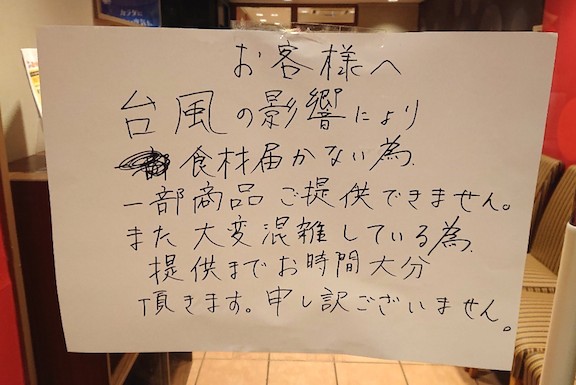 お客様へ
台風の影響により
食材届かない為
一部商品ご提供できません。
また大変混雑している為
提供までお時間大分
頂きます。申し訳ございません。